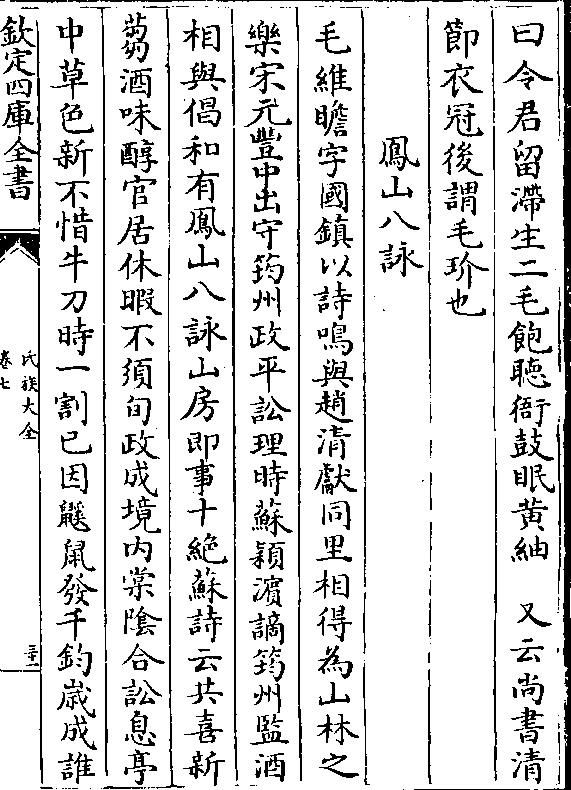 曰令君留滯生二毛飽聴衙鼓眠黄紬　又云尚書清
節衣冠後謂毛玠也
鳳山八詠
毛維瞻字國鎮以詩鳴與趙清獻同里相得為山林之
樂宋元豐中出守筠州政平訟理時蘇潁濵謫筠州監酒
相與倡和有鳳山八詠山房即事十絶蘇詩云共喜新
蒭酒味醇官居休暇不須旬政成境内棠隂合訟息亭
中草色新不惜牛刀時一割已因鼷鼠發千鈞嵗成誰
欽定四庫全書
氏族大全
卷七
三十一